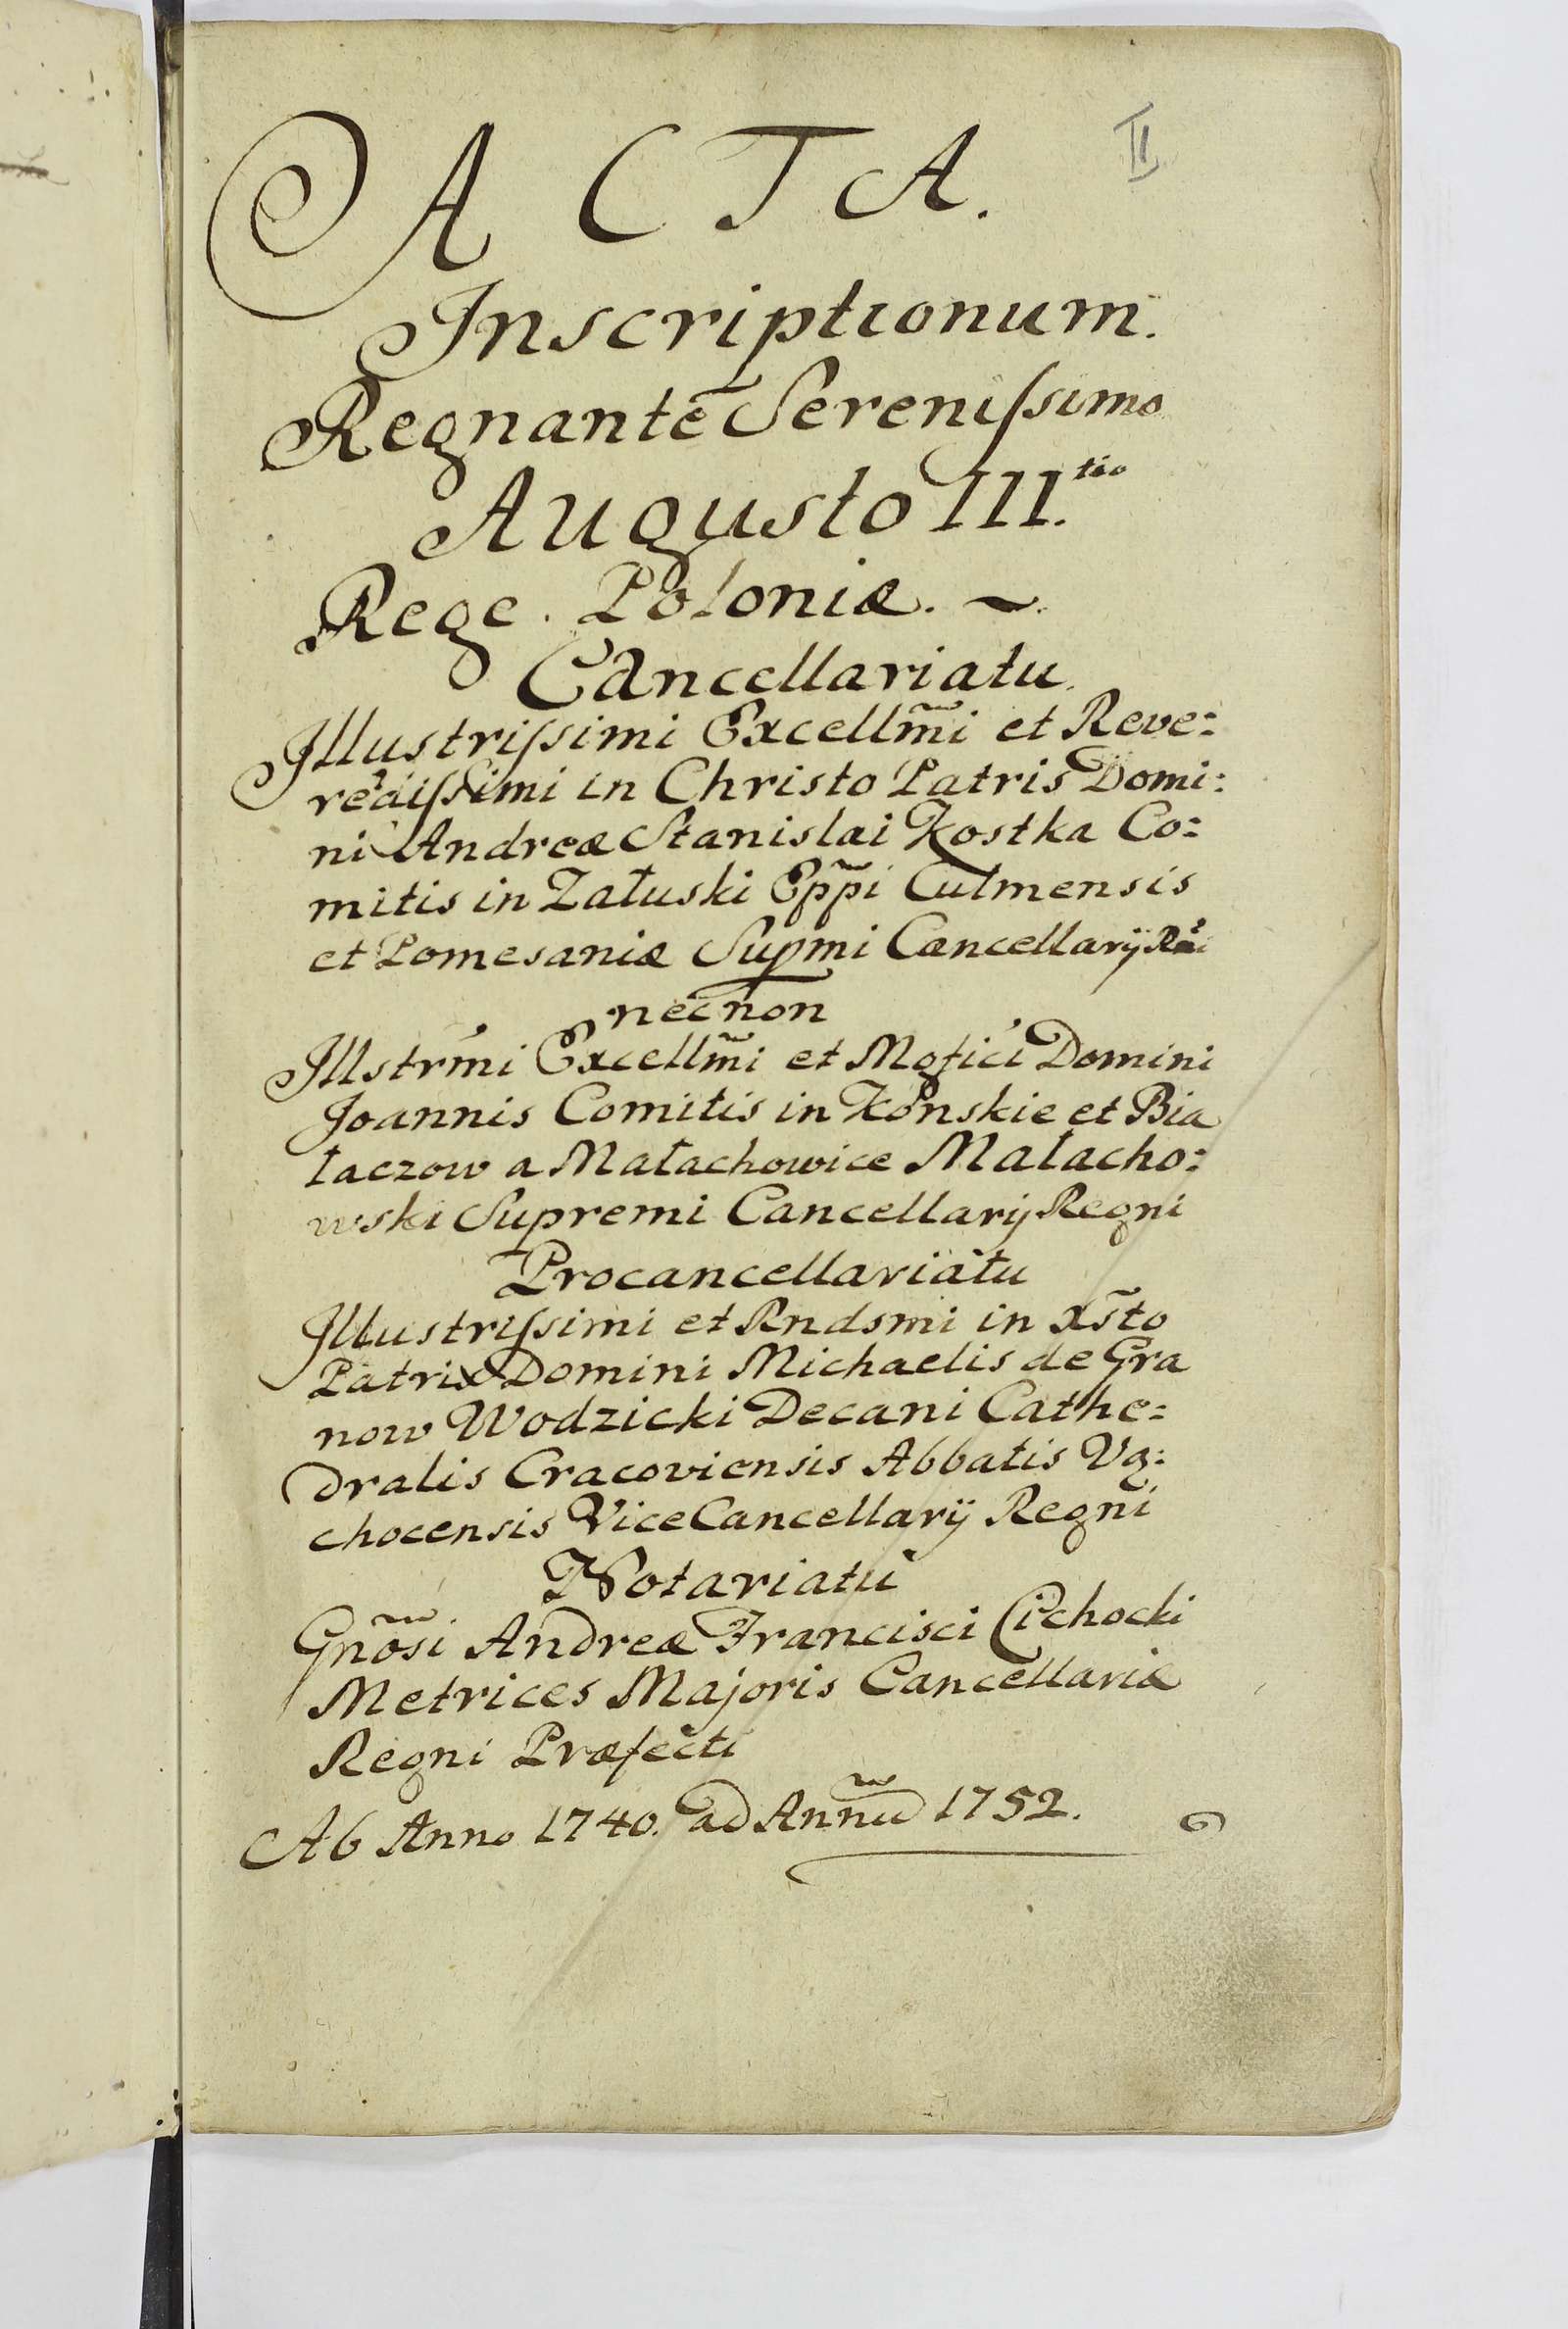 II
ACTA.
Inscriptionum.
Regnante Sereniſsimo
Augusto III.tio
Rege. Poloniæ. ~
Cancellariatu.
Illustriſsimi Excellm̃i et Reve:
rediſsimi in Christo Patris Domi:
ni Andreæ Stanislai Kostka Co:
mitis in Załuski Epp̃i Culmensis
et Pomesaniæ Supmi Cancellarij
necnon
Illstrmi Excellm̃i et Mgfici Domini
Joannis Comitis in Konskie et Bia
łaczow a Małachowice Małacho:
wski Supremi Cancellarij Regni
Procancellariatu
Illustriſsimi et Rndsmi in Xsto
Patris Domini Michaelis de Gra
now Wodzicki Decani Cathe:
dralis Cracoviensis Abbatis Vą:
chocensis ViceCancellarij Regni
Notariatu
Gñosi Andreæ Francisci Cichocki
Metrices Majoris Cancellariæ
Regni Præfecti
Ab Anno 1740. ad Annũ 1752.